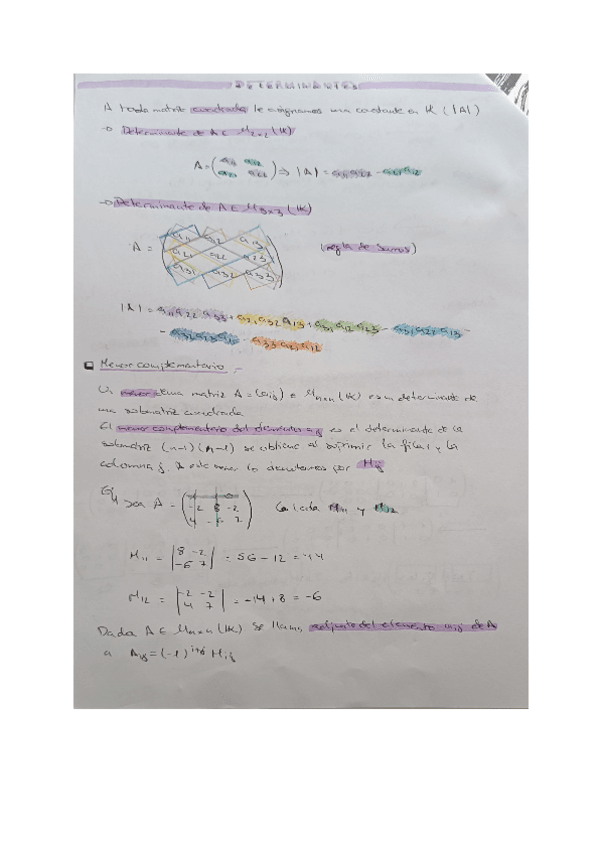 DETERMINANTES
A toda matriz cuadrada le asignamos una constante en K (|A|)
→ Determinante de A ∈ M2x2 (K)
A = (a11 a12 / a21 a22) ⇒ |A| = a11 a22 - a21 a12
→ Determinante de A ∈ M3x3 (K)
A = (a11 a12 a13 / a21 a22 a23 / a31 a32 a33) (regla de Sarrus)
|A| = a11 a22 a33 + a21 a32 a13 + a31 a12 a23 - a31 a22 a13 -
- a32 a23 a11 - a33 a21 a12
Menor complementario
Un menor de una matriz A = (aij) ∈ Mnxn (K) es un determinante de
una submatriz cuadrada
El menor complementario del elemento aij es el determinante de la
submatriz (n-1)(n-1) se obtiene al suprimir la fila i y la
columna j. A este menor lo denotamos por Mij
Ej sea A = ( -2 8 -2 / 4 -6 7 ) Calcula M11 y M12
M11 = |8 -2 / -6 7| = 56 - 12 = 44
M12 = |-2 -2 / 4 7| = -14 + 8 = -6
Dada A ∈ Mnxn (K) se llama adjunto del elemento aij de A
a Aij = (-1)^i+j Mij